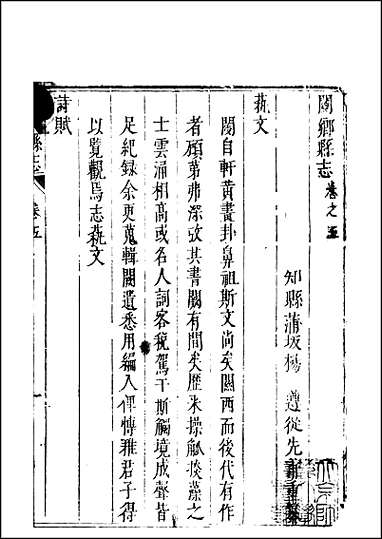 閿鄉縣志 卷之五
知縣蒲坂楊 遵從先
藝文
閿自軒黃畫卦鼻祖斯文尚矣關西而後代有作
者顧第弗深攷其書闕有間矣歷來操觚掞藻之
士雲涌相高或名人詞客稅駕于斯觸境成聲皆
足紀録余更蒐輯闕遺悉用編入俾博雅君子得
以覽觀焉志藝文
詩賦
卷五